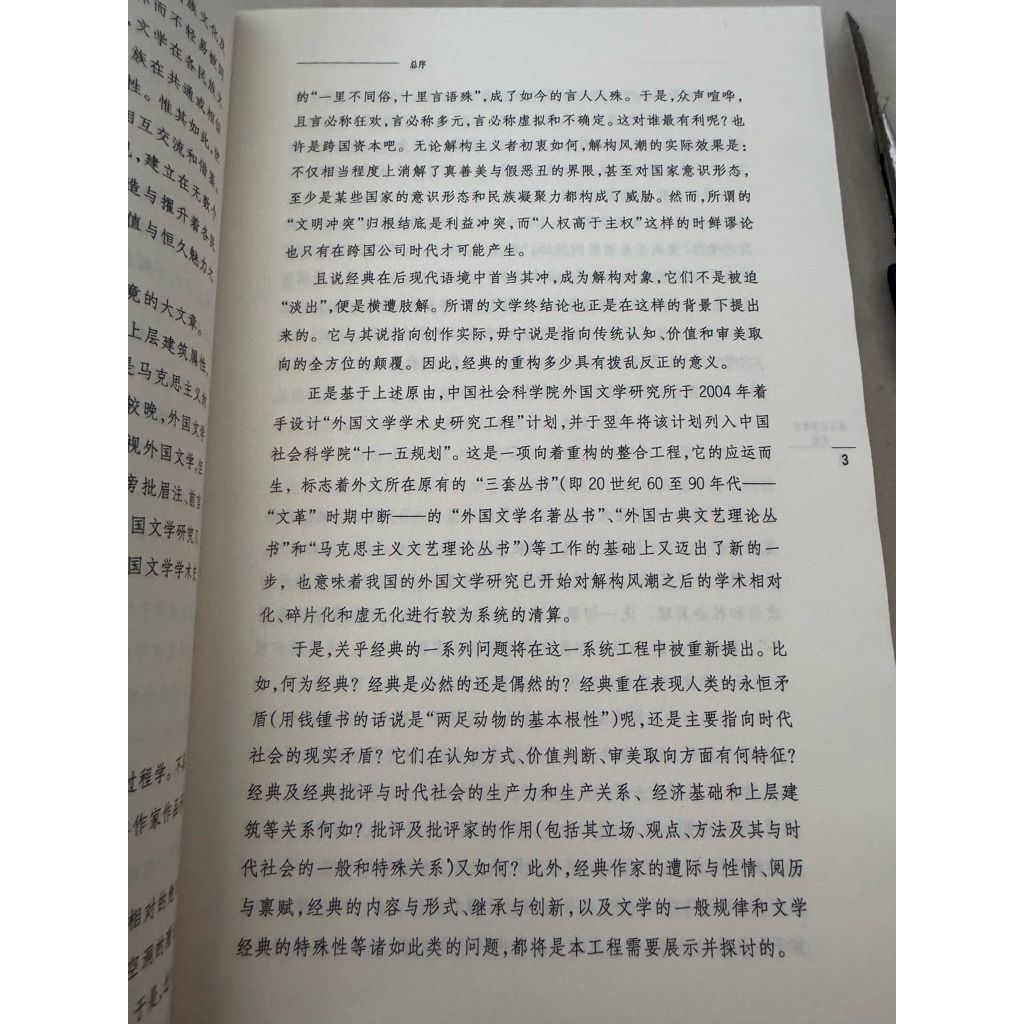 族文化及
你而不轻易被
，文学在各民族文
族在共通或相似
性。惟其如此，世
相互交流和借鉴。
见，建立在无数个
造与擢升着各民
值与恒久魅力之
竟的大文章。
上层建筑属性，
是马克思主义的
较晚，外国文学
视外国文学，但
旁批眉注、前言
国文学研究几
国文学学术史
过程学。不
作家作品
相对的
空洞的
于是，
总序
的“一里不同俗，十里言语殊”，成了如今的言人人殊。于是，众声喧哗，
且言必称狂欢，言必称多元，言必称虚拟和不确定。这对谁最有利呢？也
许是跨国资本吧。无论解构主义者初衷如何，解构风潮的实际效果是：
不仅相当程度上消解了真善美与假恶丑的界限，甚至对国家意识形态，
至少是某些国家的意识形态和民族凝聚力都构成了威胁。然而，所谓的
“文明冲突”归根结底是利益冲突，而“人权高于主权”这样的时鲜谬论
也只有在跨国公司时代才可能产生。
且说经典在后现代语境中首当其冲，成为解构对象，它们不是被迫
“淡出”，便是横遭肢解。所谓的文学终结论也正是在这样的背景下提出
来的。它与其说指向创作实际，毋宁说是指向传统认知、价值和审美取
向的全方位的颠覆。因此，经典的重构多少具有拨乱反正的意义。
正是基于上述原由，中国社会科学院外国文学研究所于2004年着
手设计“外国文学学术史研究工程”计划，并于翌年将该计划列入中国
社会科学院“十一五规划”。这是一项向着重构的整合工程，它的应运而
生，标志着外文所在原有的“三套丛书”（即20世纪60至90年代——
“文革”时期中断——的“外国文学名著丛书”、“外国古典文艺理论丛
书”和“马克思主义文艺理论丛书”）等工作的基础上又迈出了新的一
步，也意味着我国的外国文学研究已开始对解构风潮之后的学术相对
化、碎片化和虚无化进行较为系统的清算。
于是，关乎经典的一系列问题将在这一系统工程中被重新提出。比
如，何为经典？经典是必然的还是偶然的？经典重在表现人类的永恒矛
盾（用钱锺书的话说是“两足动物的基本根性”）呢，还是主要指向时代
社会的现实矛盾？它们在认知方式、价值判断、审美取向方面有何特征？
经典及经典批评与时代社会的生产力和生产关系、经济基础和上层建
筑等关系何如？批评及批评家的作用（包括其立场、观点、方法及其与时
代社会的一般和特殊关系）又如何？此外，经典作家的遭际与性情、阅历
与禀赋，经典的内容与形式、继承与创新，以及文学的一般规律和文学
经典的特殊性等诸如此类的问题，都将是本工程需要展示并探讨的。
3